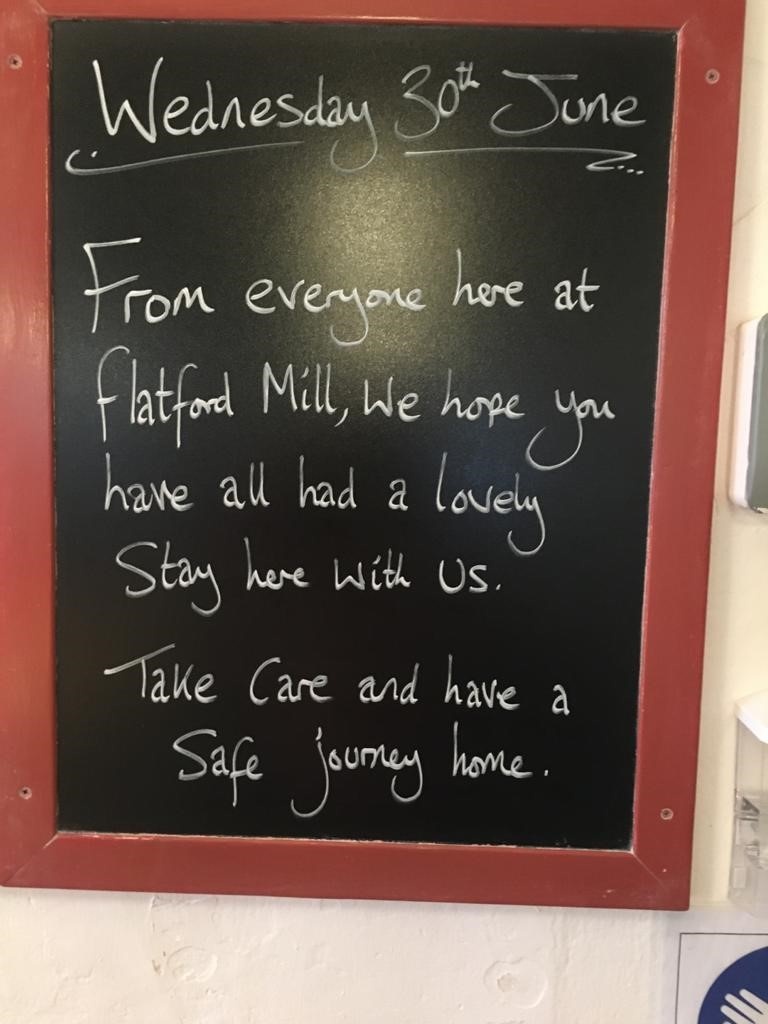 Wednesday 30th June
From everyone here at
flatford Mill, We hope you
have all had a lovely
Stay here with us.
Take Care and have a
Safe journey home.